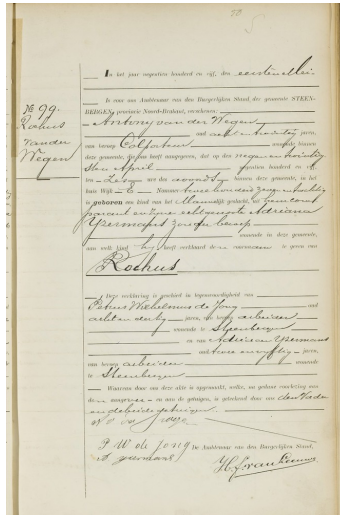 No 99.
Rochus
van der
Wegen
In het jaar negentien honderd en vijf, den eersten Mei
is voor ons Ambtenaar van den Burgerlijken Stand der gemeente STEEN-
BERGEN, provincie Noord-Brabant, verschenen:
Antony van der Wegen
oud acht en twintig jaren,
van beroep Colporteur wonende binnen
deze gemeente, die ons heeft aangegeven, dat op den negen en twintig
sten April negentien honderd en vijf
ten zeven ure des avonds binnen deze gemeente, in het
huis Wijk C Nummer twee honderd zeven en tachtig
is geboren een kind van het Mannelijk geslacht, uit hem com
parant en zijne echtgenoote Adriana
Ypermans zonder beroep
wonende in deze gemeente
aan welk kind hij heeft verklaard den voornaam te geven van
Rochus
Deze verklaring is geschied in tegenwoordigheid van
Petrus Wilhelmus de Jong oud
acht en dertig jaren, van beroep arbeider
wonende te Steenbergen
en van Adriaan Ypermans
oud twee en vijftig jaren,
van beroep arbeider wonende
te Steenbergen
Waarvan door ons deze akte is opgemaakt, welke, na gedane voorlezing aan
den aangever en aan de getuigen, is geteekend door ons den Vader
en de beide getuigen.
P W de Jong De Ambtenaar van den Burgerlijken Stand,
A Ypermans